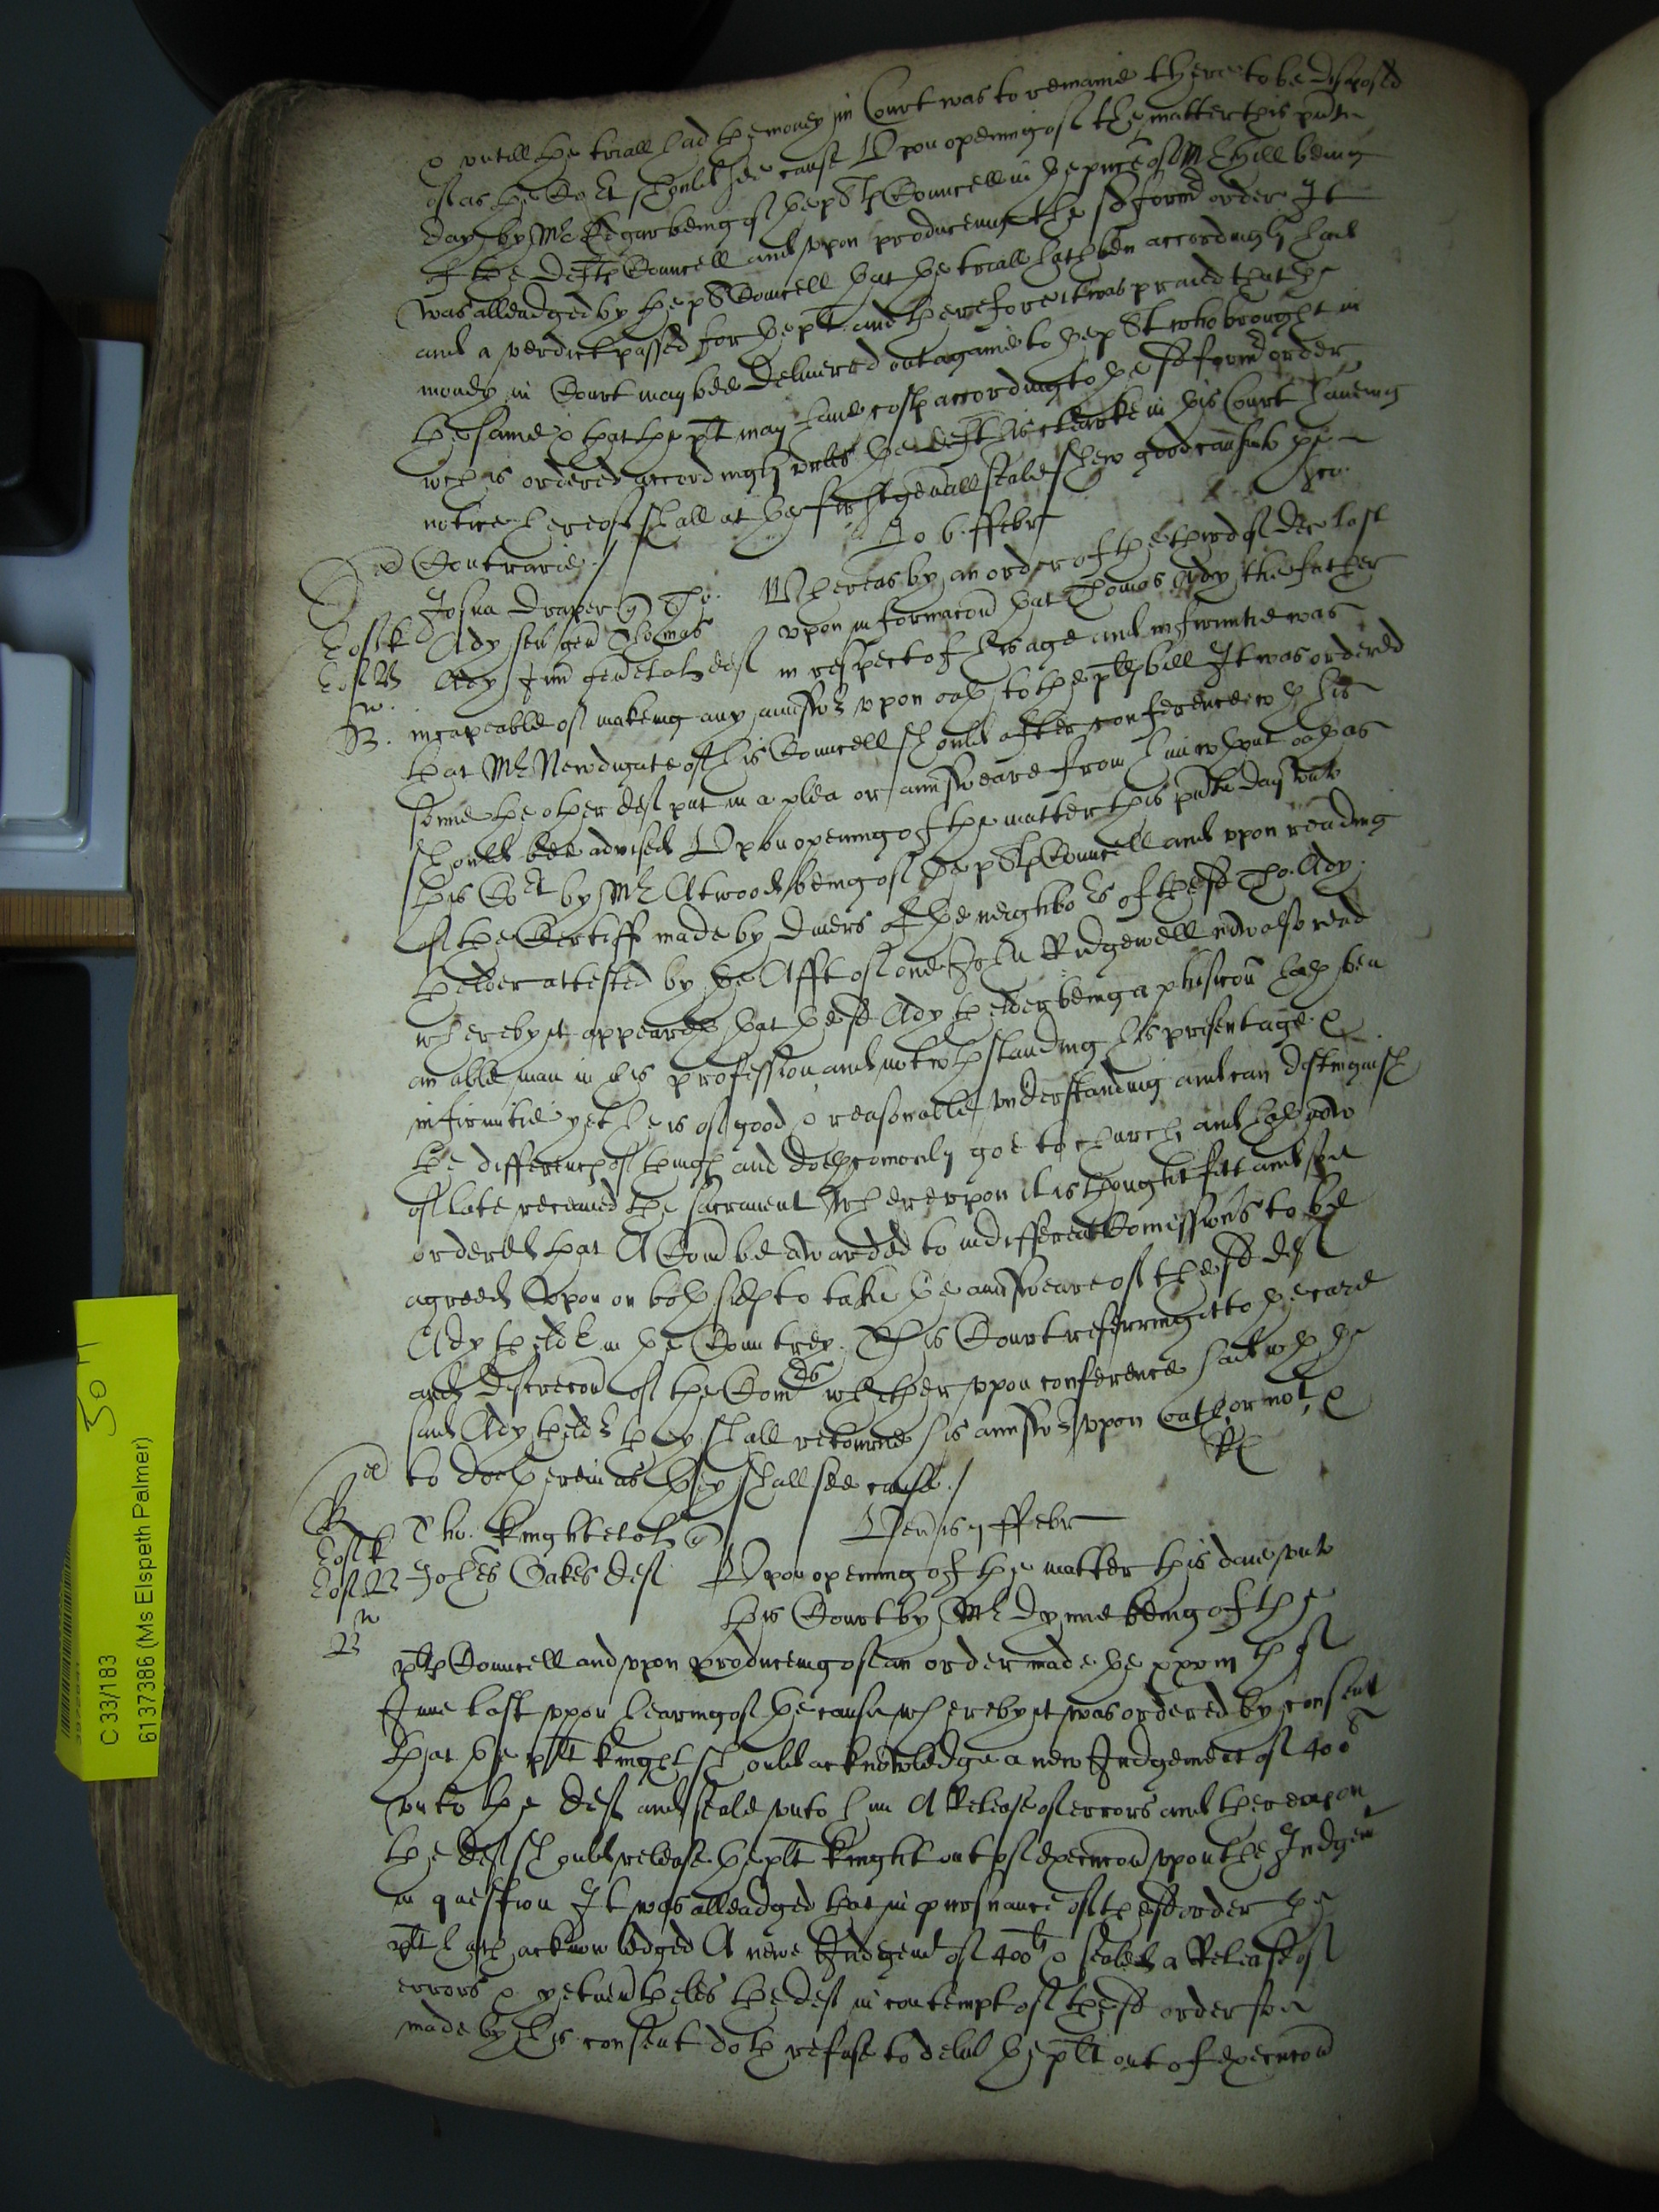 & untill the triall had the money in Court was to remaine there to be disposed
of as the Cort should see cause Upon opening of the matter this pnte
day by Mr Edgar being of the plts Councell in the pnce of Mr Hill being
of the Defts Councell and upon produceing the sd form order It
was alleadged by the plts Councell that the triall hath ben accordingly had
and a verdict passed for the plt and therefore it was praied that the
money in Court may bee delivered out againe to the plt who brought in
the same & that the plt may have costs according to the sd form order
wch is ordered accordingly unles the deft his clearke in this Court haveing
notice hereof shall at the first genall seale shew good cause to the
Contrarie
Jo 6 ffebr
Josua Draper Tho.
Ady sen gen Thomas
Ady Jun gen et al def
Whereas by an order of the third of Dec last
upon informacon that Thomas Ady the father
in respect of his age and infirmitie was
incapeable of making any answr upon oath to the plts bill It was ordered
that Mr Newdigate of his Councell should after conference wth his
sonne the other def put in a plea or answeare from him wthout oath as
should bee advised Upon opening of the matter this pnte day unto
this Cort by Mr Atwood being of the plts Councell and upon reading
of the Certiff made by divers of the neighbors of the sd Tho. Ady
thelder attested by the Afft of one John Ridgewell now also read
whereby it appeareth that the sd Ady thelder being a phisicon hath ben
an able man in his profession and notwthstanding his present age &
infirmitie yet he is of good & reasonable understanding and can distinguish
the difference of things and doth comonly goe to church and hath now
of late received the sacrament Whereupon it is thought fitt and soe
ordered that A Com be awarded to indifferent Comissionrs to be
agreed upon on both sides to take the answeare of the sd def
Ady theldr in the Countrey. This Court referring it to the care
and discrecon of the Comrs whether upon conference had wth the
said Ady theldr they shall retourne his answr upon oath, or not, &
to doe therein as they shall see cause
Tho. Knight et al
Johes Oakes def
Ven is 7 ffebr
Upon opening of the matter this daie unto
this Court by Mr Dynne being of the
plts Councell and upon produceing of an order made the xxvij th of
June last upon hearing of the cause whereby it was ordered by consent
that the plt Knight should acknowledge a new Judgement of 400
unto the def and seale unto him A Release of errors and thereupon
the def should release the plt Knight out of execucon upon the Judgent
in question It was alleadged that in pursuance of the sd order the
plt hath acknowledged A newe Judgemt of 400 & sealed a Release of
errors & yet nevtheles the def in contempt of the sd order soe
made by his consent doth refuse to delivr the plt out of execucon
50 H
C 33/183
6137386 (Ms Elspeth Palmer)